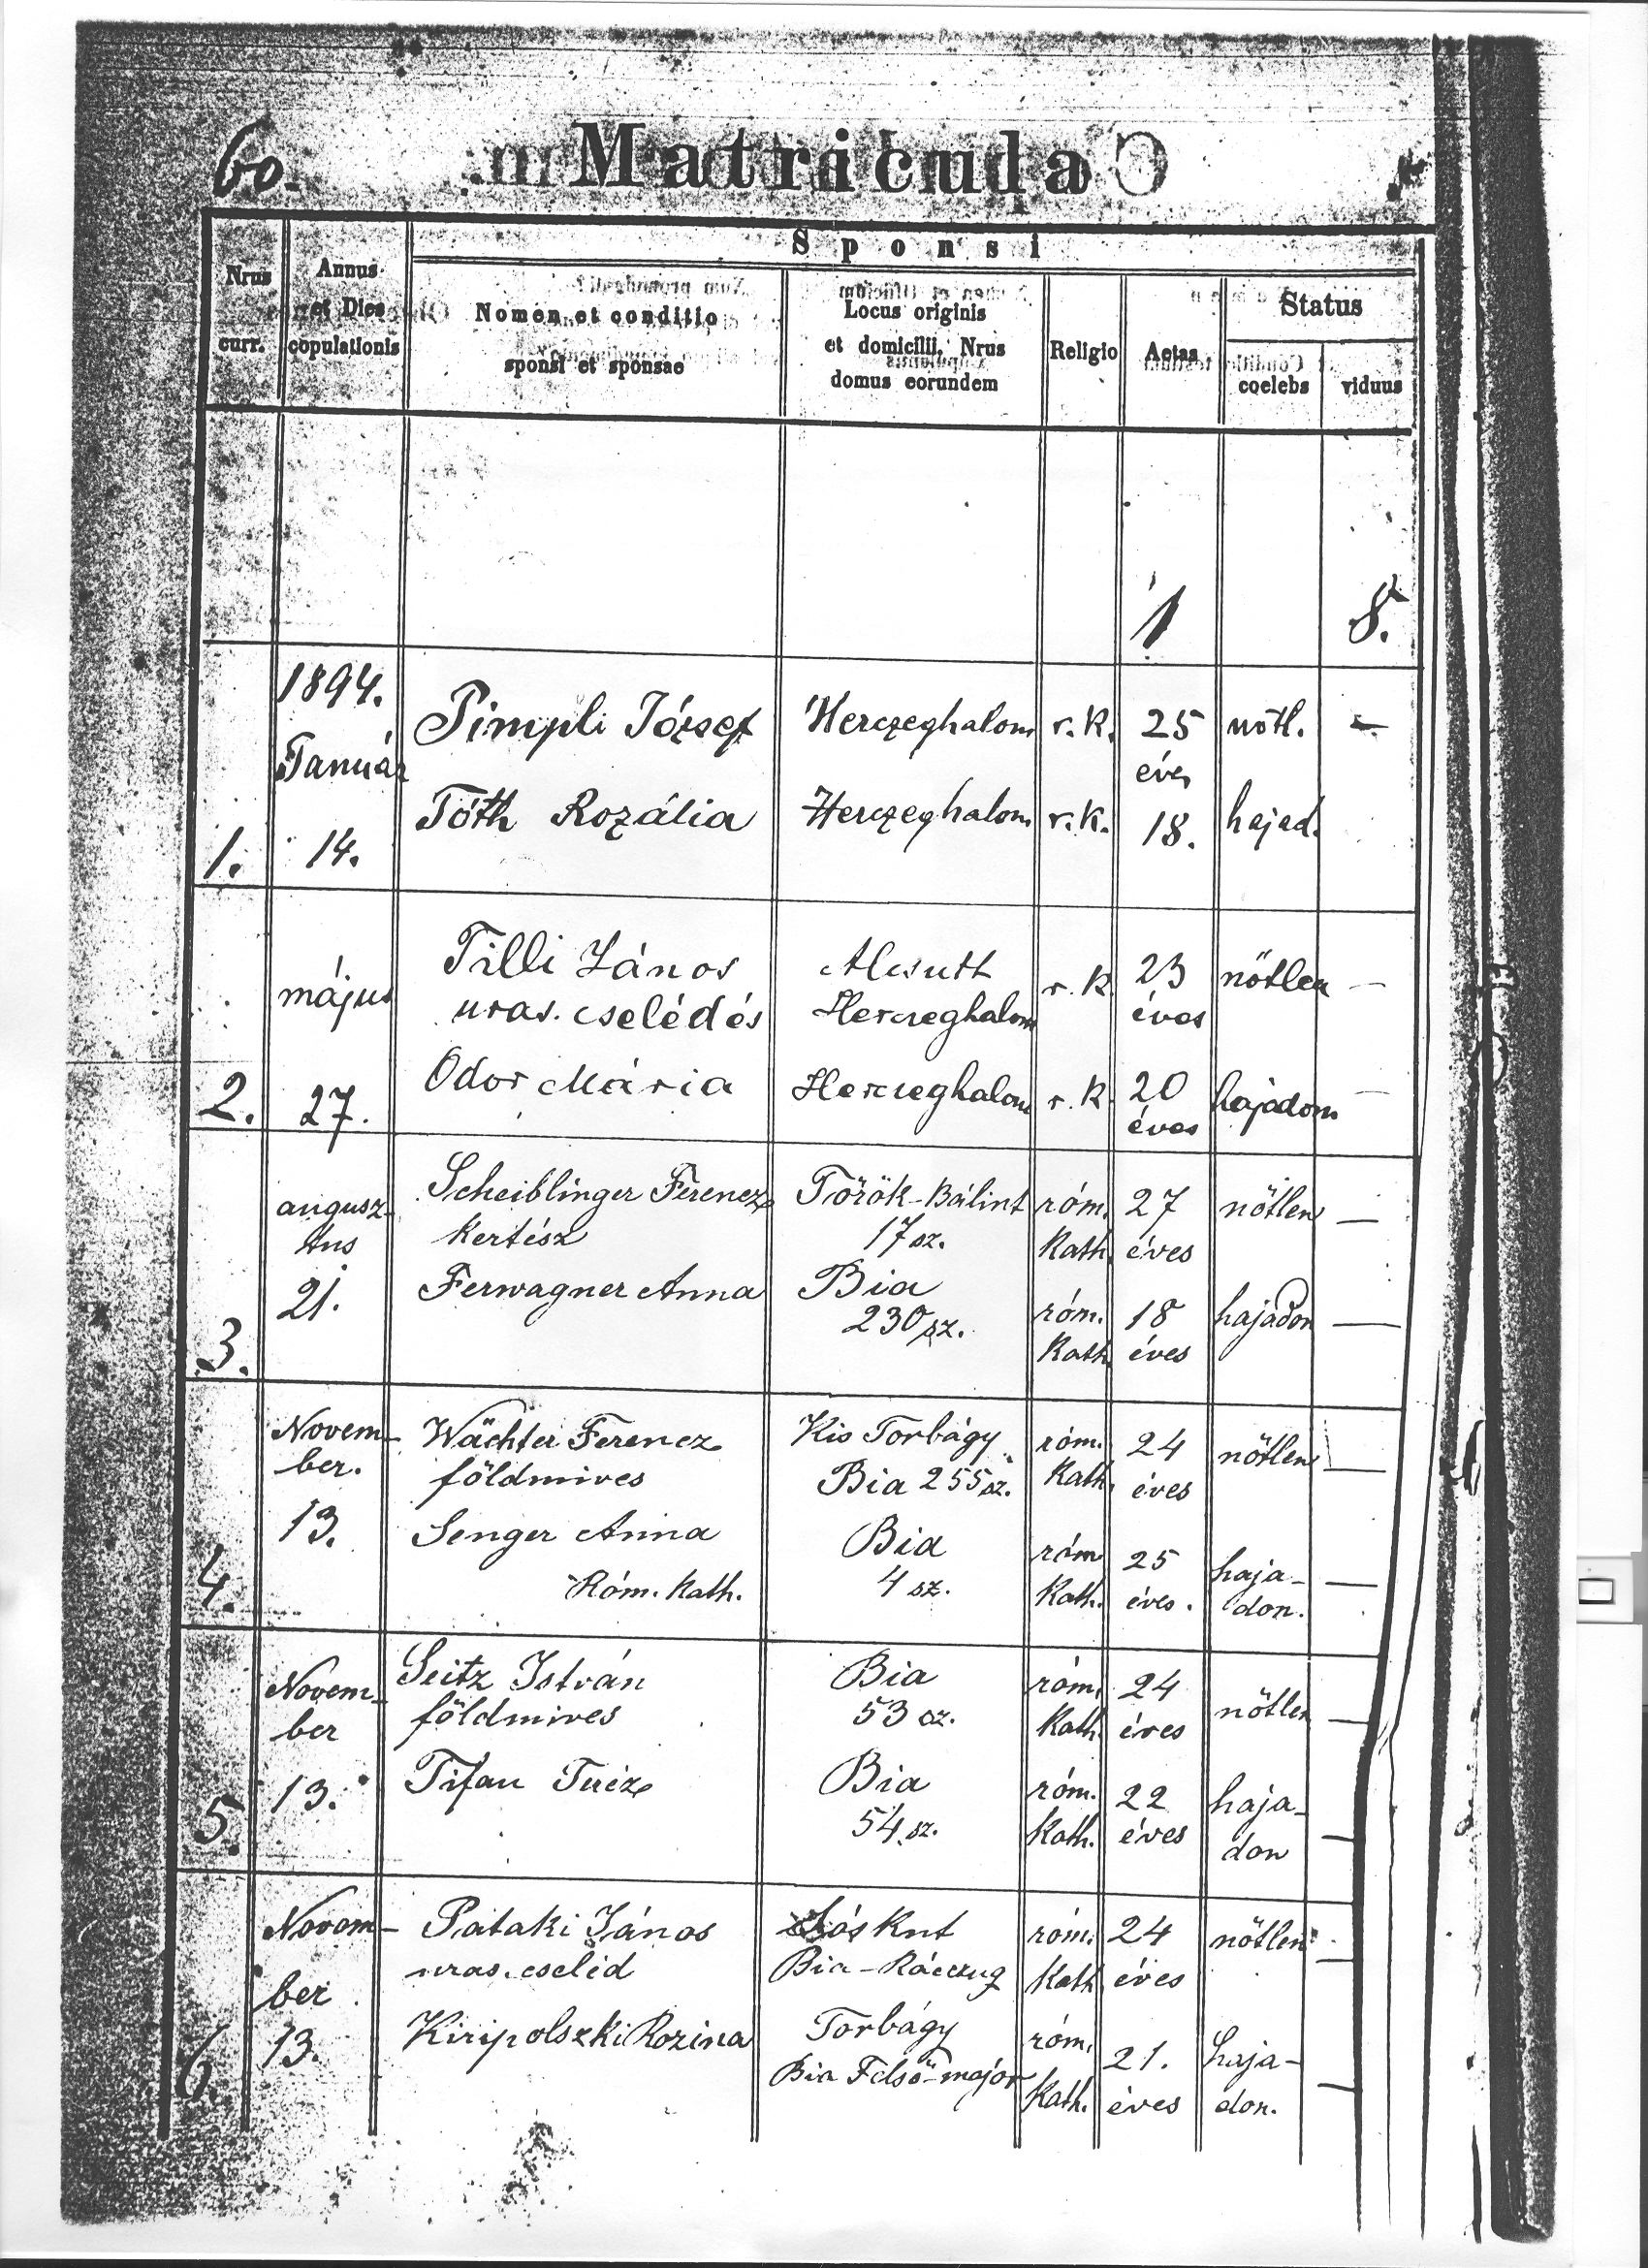 60.
Matricula
Sponsi
Nrus curr.
Annus et Dies copulationis
Nomen et conditio sponsi et sponsae
Locus originis et domicilii, Nrus domus eorundem
Religio
Aetas
Status
coelebs
viduus
1 8.
1894.
Pimpli József Herczeghalom r. k. 25 nőtl. —
Január
éves
Tóth Rozália Herczeghalom r. k. 18. hajad.
1. 14.
Tilli János Alcsuth r. k. 23 nőtlen —
május uras. cseléd és Herczeghalom éves
Odor Mária Herczeghalom r. k. 20 hajadom —
2. 27. éves
augusz- Scheiblinger Ferencz Török-Bálint róm. 27 nőtlen —
tus kertész 17 sz. Kath. éves
21. Ferwagner Anna Bia
230 sz. róm. 18 hajadon —
3. Kath. éves
Novem- Wächter Ferencz Kis Torbágy róm. 24 nőtlen —
ber. földmives Bia 255 sz. Kath. éves
13. Senger Anna Bia róm. 25 haja- —
4. Róm. Kath. 4 sz. Kath. éves. don.
Novem- Seitz István Bia róm. 24 nőtlen —
ber földmives 53 sz. Kath. éves
13. Tifan Teréz Bia róm. 22 haja- —
5. 54. sz. Kath. éves don
Novem- Pataki János Sóskut róm. 24 nőtlen —
ber uras. cseléd Bia-Ráczug Kath. éves
13. Kiripolszki Rozina Torbágy róm. 21. haja- —
6. Bia Felső-major Kath. éves don.